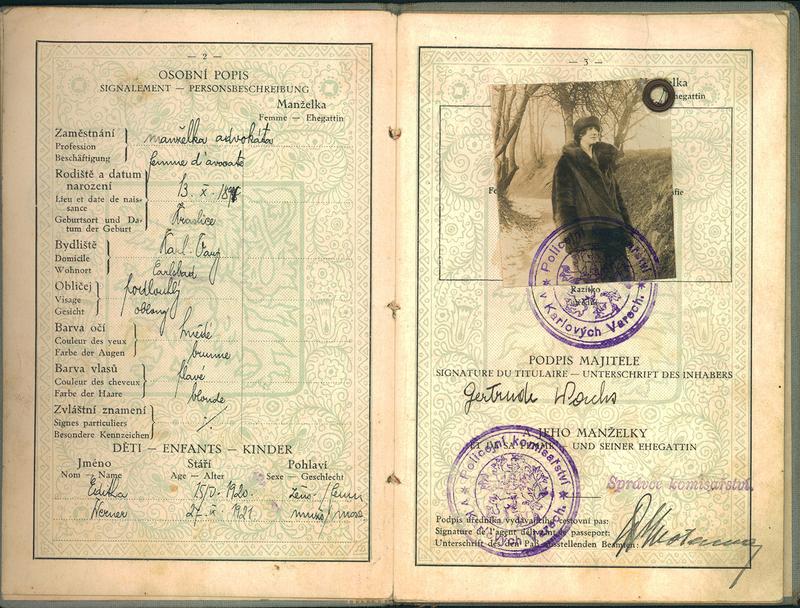 — 2 —
OSOBNÍ POPIS
SIGNALEMENT — PERSONSBESCHREIBUNG
Manželka
Femme — Ehegattin
Zaměstnání
Profession
Beschäftigung
manželka advokáta
femme d'avocate
Rodiště a datum narození
Lieu et date de naissance
Geburtsort und Datum der Geburt
13. X.
Kraslice
Bydliště
Domicile
Wohnort
Karl. Vary
Carlsbad
Obličej
Visage
Gesicht
podlouhlý
oblong
Barva očí
Couleur des yeux
Farbe der Augen
hnědé
brunne
Barva vlasů
Couleur des cheveux
Farbe der Haare
plavé
blonde
Zvláštní znamení
Signes particuliers
Besondere Kennzeichen
DĚTI — ENFANTS — KINDER
Jméno Stáří Pohlaví
Nom — Name Age — Alter Sexe — Geschlecht
Editka 1920.
Werner 1921
— 3 —
Razítko
PODPIS MAJITELE
SIGNATURE DU TITULAIRE — UNTERSCHRIFT DES INHABERS
Gertrude
A JEHO MANŽELKY
UND SEINER EHEGATTIN
Policejní komisařství
v Karlových Varech.
Policejní komisařství
Varech.
Správce komisařství.
Podpis úředníka vydávajícího cestovní pas:
Signature de l'agent délivrant le passeport:
Unterschrift des den Paß ausstellenden Beamten: